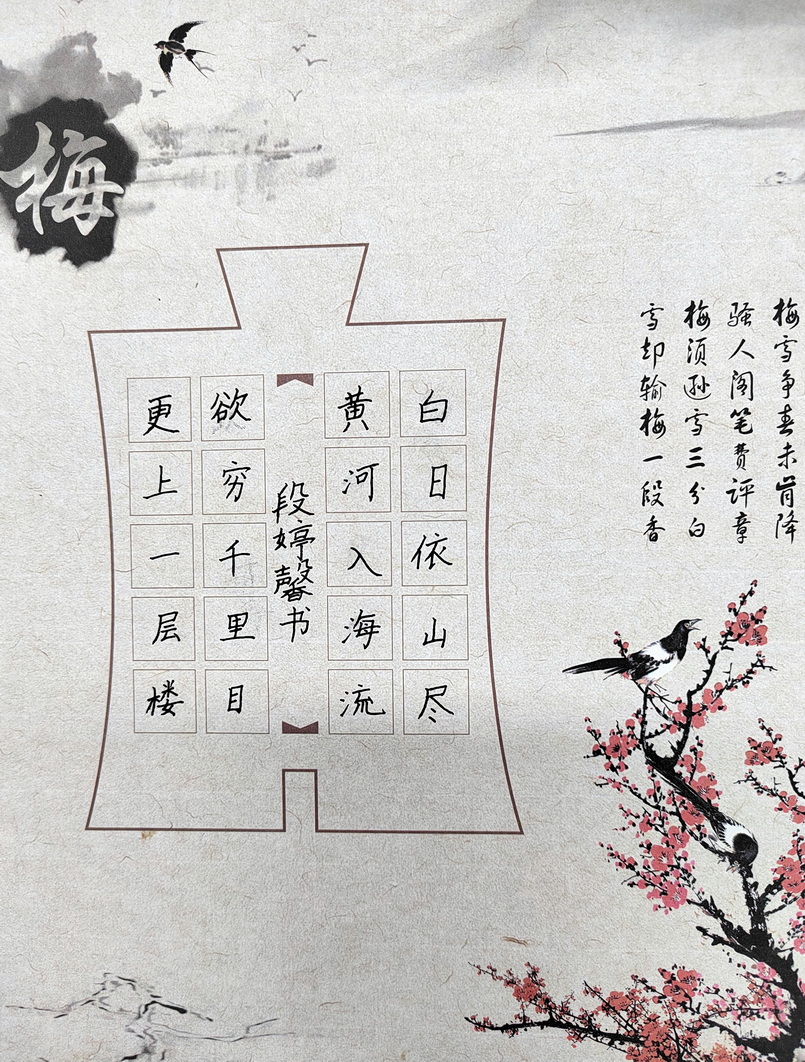 梅
梅雪争春未肯降
骚人阁笔费评章
梅须逊雪三分白
雪却输梅一段香
白日依山尽
黄河入海流
段婷馨书
欲穷千里目
更上一层楼